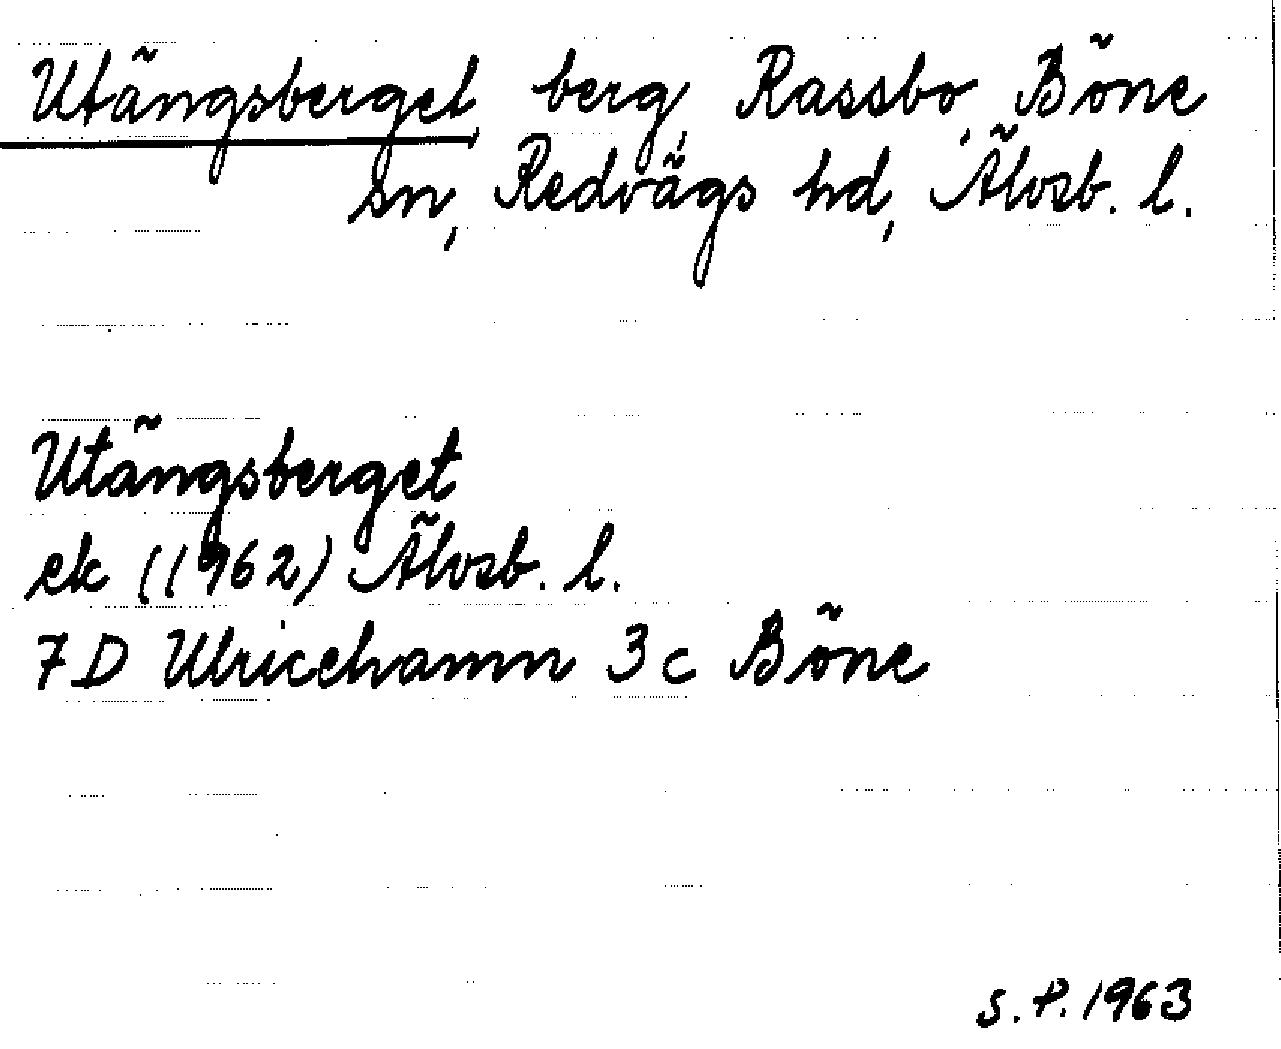 Utängsberget, berg, Rassbo, Böne
sn, Redvägs hd, Älvsb. l.
Utängsberget
ek (1962) Älvsb. l.
7D Ulricehamn 3c Böne
S.P. 1963